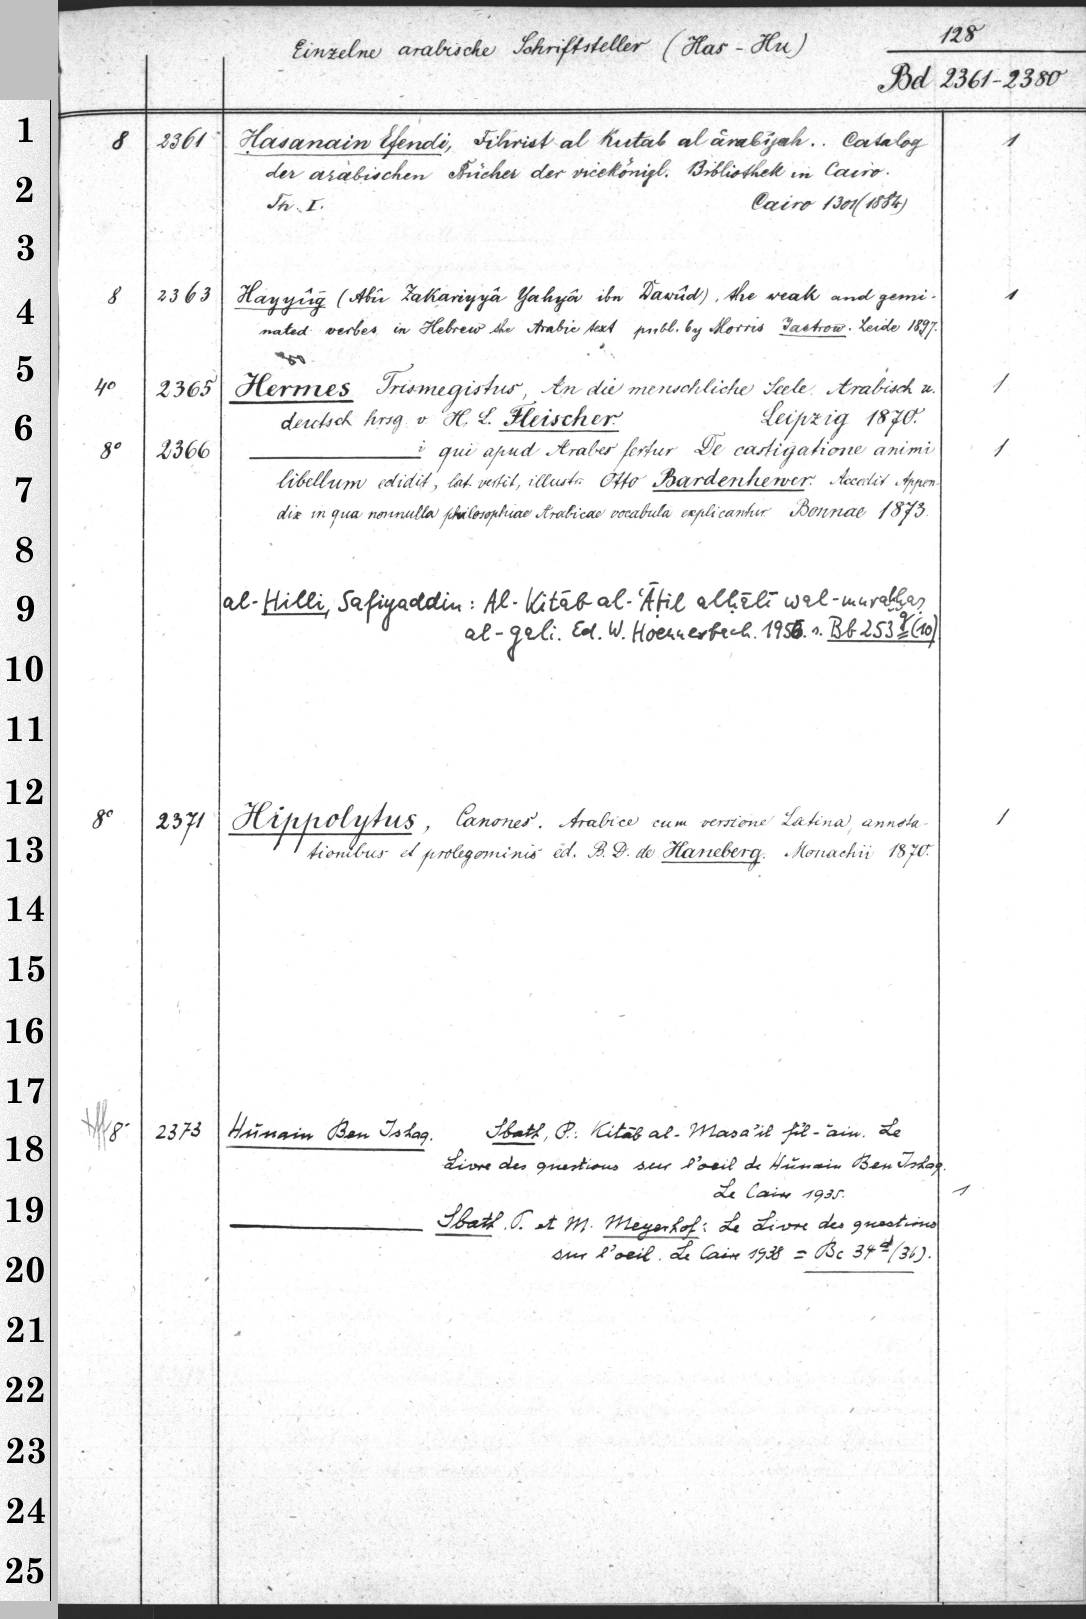 Einzelne arabische Schriftsteller (Has - Hu)
128
Bd 2361-2380
1 8 2361 Hasanain Efendi, Fihrist al Kutab al ârabîjah.. Catalog 1
2 der arabischen Bücher der vicekönigl. Bibliothek in Cairo.
Th. I. Cairo 1301 (1884)
3
4 8 2363 Hayyûġ (Abû Zakariyyâ Yahyâ ibn Dawûd), the weak and gemi- 1
nated verbes in Hebrew the Arabic text publ. by Morris Jastrow. Leide 1897.
5 4° 2365 Hermes Trismegistus, An die menschliche Seele. Arabisch u. 1
6 deutsch hrsg. v. H. L. Fleischer. Leipzig 1870.
8° 2366 i qui apud Arabes fertur De castigatione animi 1
7 libellum edidit, lat. vertit, illustr. Otto Bardenhewer. Accedit Appen-
dix in qua nonnulla philosophiae Arabicae vocabula explicantur Bonnae 1873.
8
9 al-Hilli, Safiyaddin: Al-Kitāb al-ʿĀṭil alḥālī wal-muraḫḫaṣ
al-gali. Ed. W. Hoenerbach. 1956. s. Bb 253 g (10)
10
11
12 8° 2371 Hippolytus, Canones. Arabice cum versione Latina, annota- 1
13 tionibus et prolegominis ed. B. D. de Haneberg. Monachii 1870.
14
15
16
17
18 8° 2373 Hŭnain Ben Ishaq. Sbath, P.: Kitāb al-Masa'il fil-'ain. Le
Livre des questions sur l'oeil de Hŭnain Ben Ishaq.
Le Caire 1935. 1
19 Sbath, P. et M. Meyerhof: Le Livre des questions
20 sur l'oeil. Le Caire 1938 = Bc 34 d (36).
21
22
23
24
25